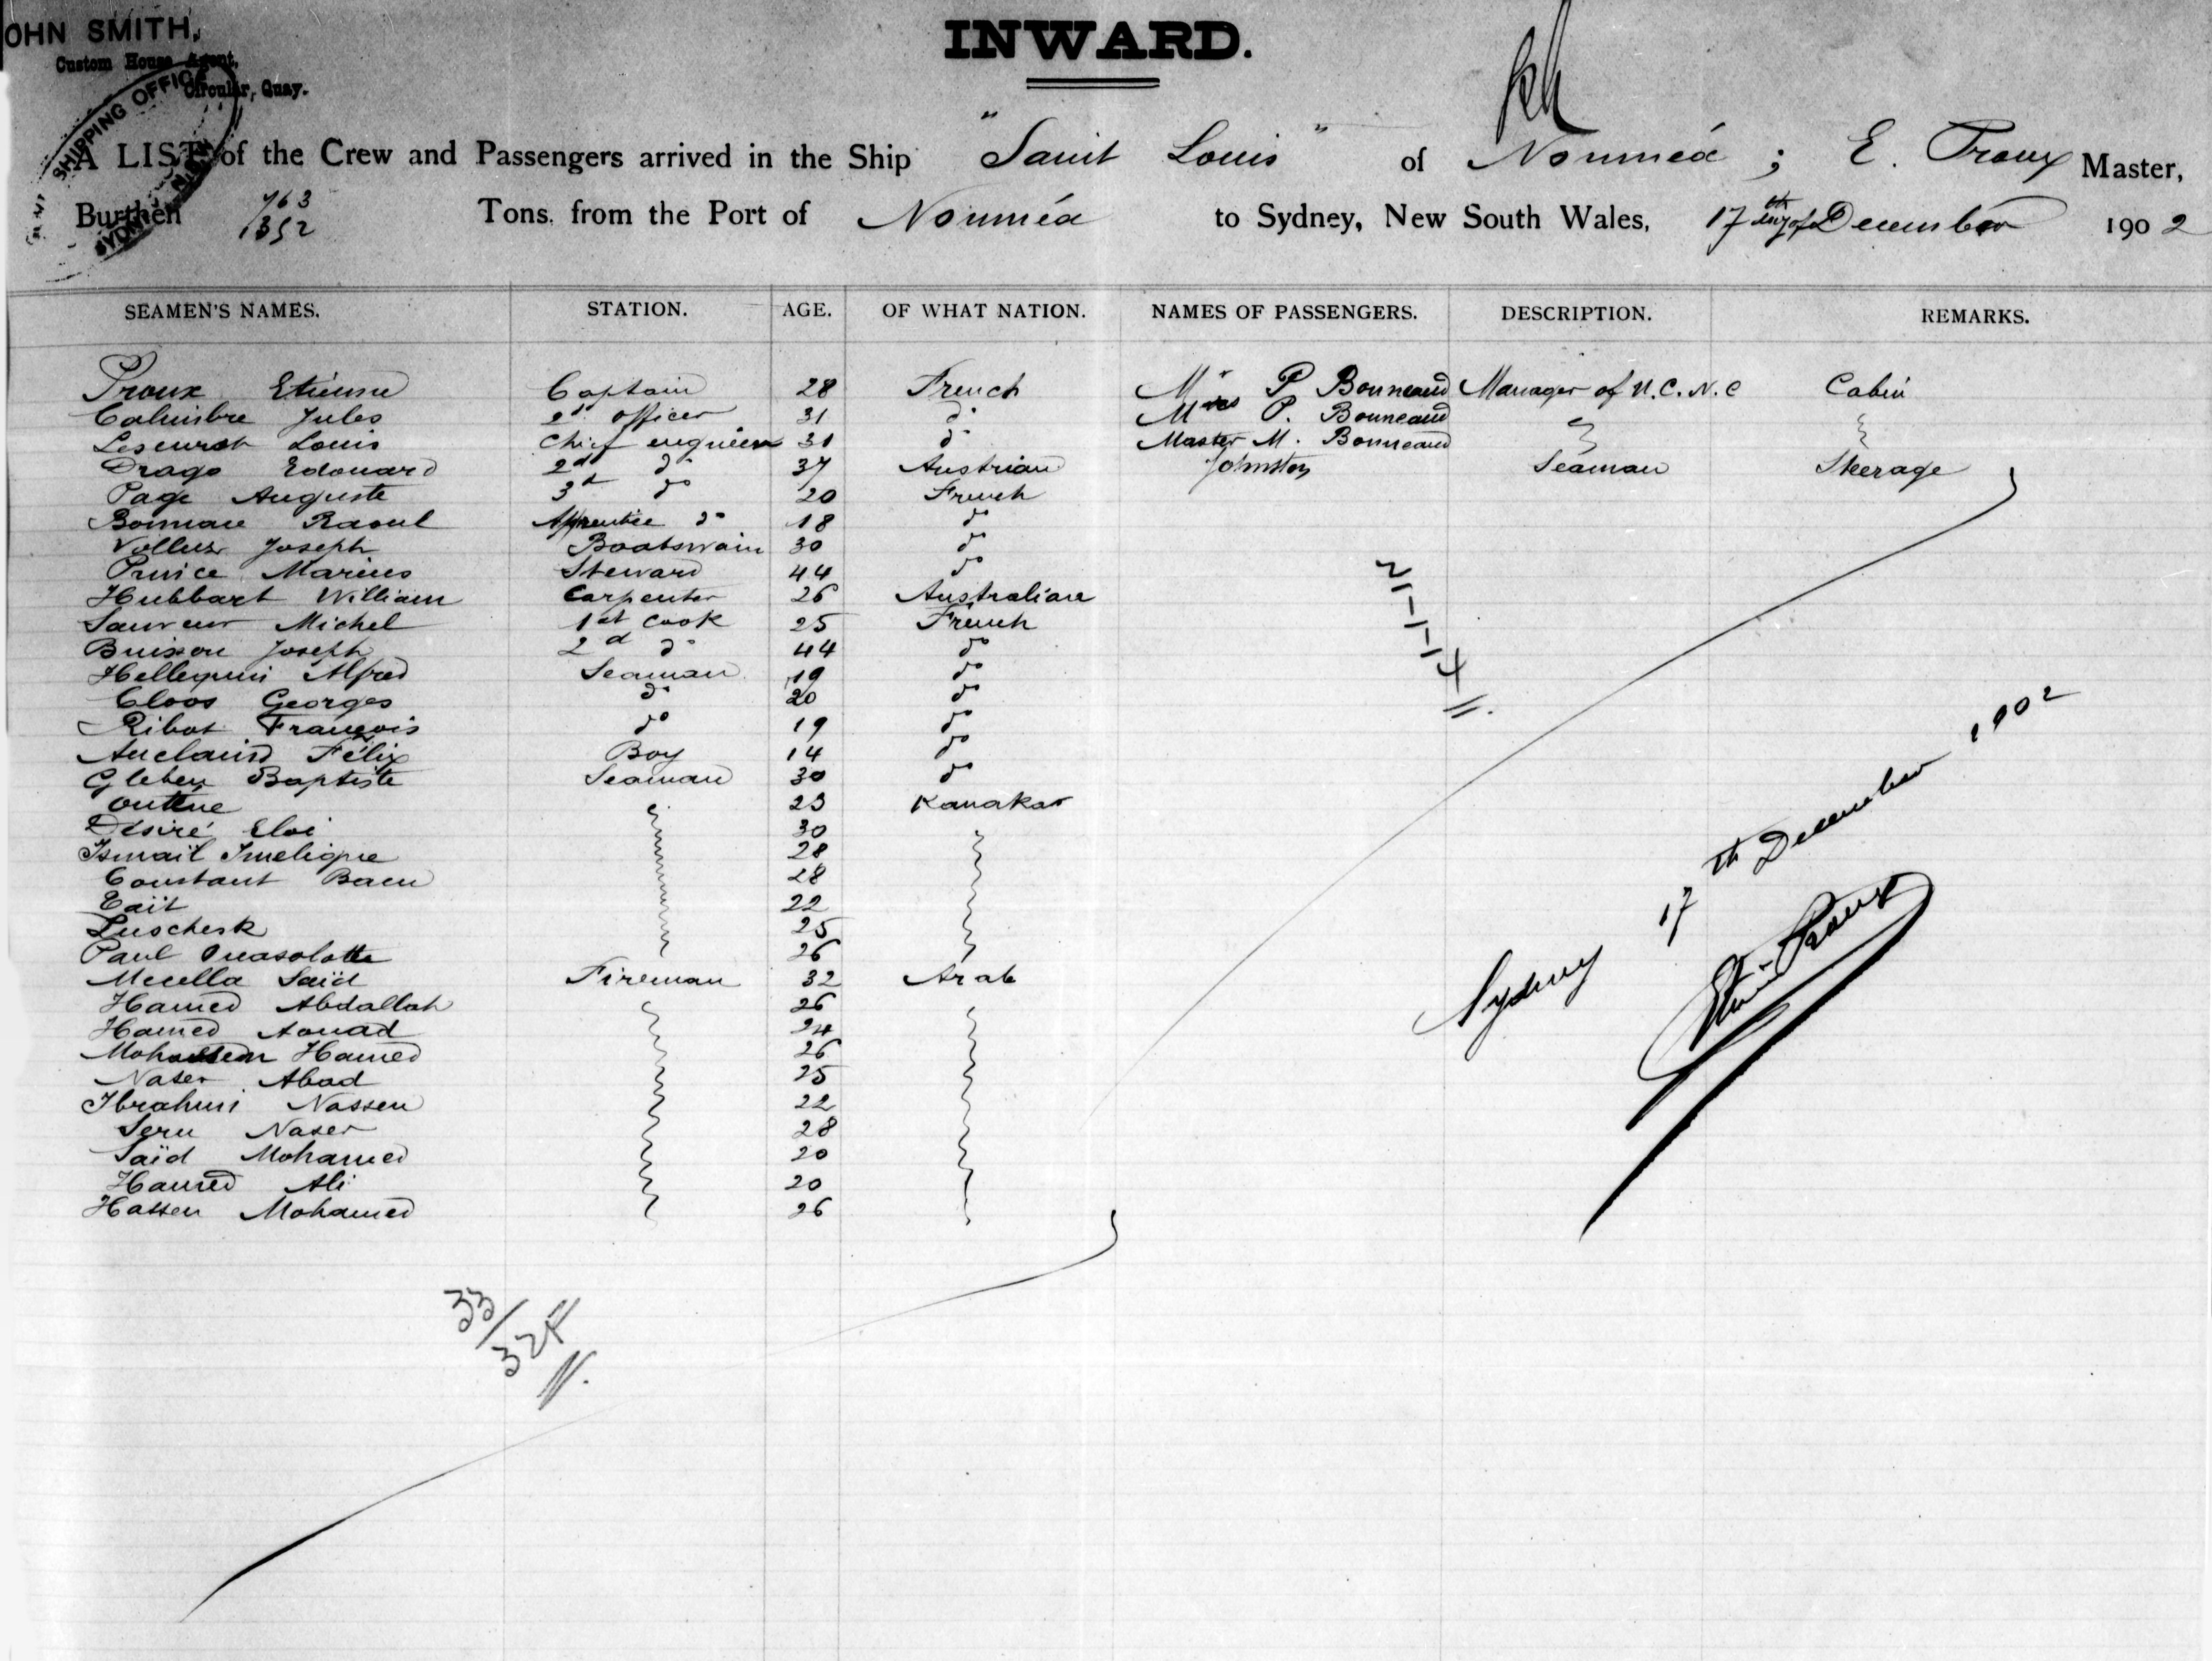 OHN SMITH,
Custom House Agent,
Circular, Quay.
SHIPPING OFFICE
SYDNEY
INWARD.
A LIST of the Crew and Passengers arrived in the Ship "Saint Louis" of Nouméa ; E. Proux Master,
Burthen 763 1352 Tons. from the Port of Nouméa to Sydney, New South Wales, 17th day of December 1902
SEAMEN'S NAMES. STATION. AGE. OF WHAT NATION. NAMES OF PASSENGERS. DESCRIPTION. REMARKS.
Proux Etienne Captain 28 French Mr P Bonneaud Manager of N.C.N.C Cabin
Calmibre Jules 2d officer 31 do Mrs P. Bonneaud
Leseurot Louis Chief engineer 31 do Master M. Bonneaud
Drago Edouard 2d do 37 Austrian Johnston Seaman Steerage
Page Auguste 3d do 20 French
Raoul Apprentice do 18 do
Joseph Boatswain 30 do
Prince Marius Steward 44 do
Hubbart William Carpenter 26 Australian
Sauveur Michel 1st Cook 25 French
Buisson Joseph 2d do 44 do
Hellequin Alfred Seaman 19 do
Cloos Georges do 20 do
Ribot François do 19 do
Auclaird Félix Boy 14 do
Gleben Baptiste Seaman 30 do
23 Kanakas
Désiré Eloi 30
Ismaïl 28
Constant Baen 28
Eaït 22
Luscherk 25
Paul Ouasolotte 26
Mecella Saïd Fireman 32 Arab
Hamed Abdallah 26
Hamed Aouad 24
Hamed 26
Naser Abad 25
Ibrahim Nassen 22
Seru Naser 28
Saïd Mohamed 20
Hamed Ali 20
Hassen Mohamed 26
21-1-14
Sydney 17th December 1902
Etienne Proux
33/32